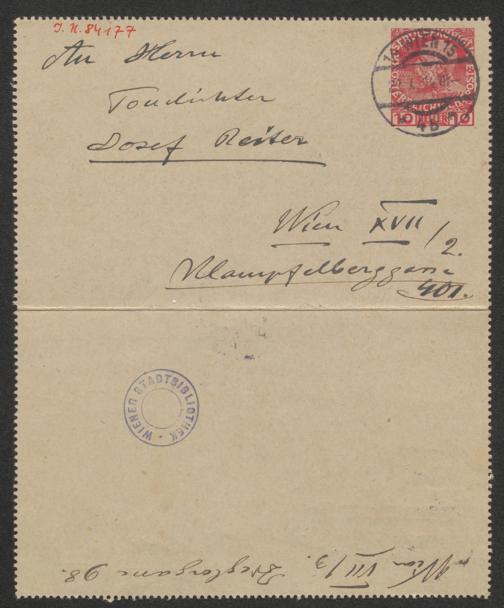 I. N. 84177
An Herrn
Tondichter
Josef Reiter
Wien XVII/2.
Klampfelberggasse
WIEN 15
4b
10 10
WIENER STADTBIBLIOTHEK
Wien VII/3. Zieglergasse 98.